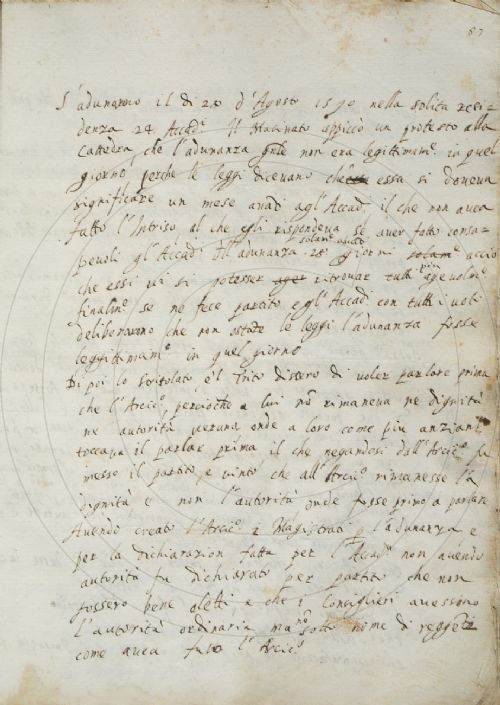 87
S'adunarono il dì 28 d'Agosto 1590 nella solita resi
denza 24 Accad.i Il Macinato appiccò un protesto alla
Cattedra, che l'adunanza non era legittimam.e in quel
giorno, perche le leggi dicevano che essa si doveva
significare un mese avāti agl'Accad. il che non avea
fatto l'Intriso al che egli rispondeva se aver fatto consa
pevoli gl'Accad. dell'adunanza 28 giorni solam.e avāti acciò
che essi vi si potesser ritrovar tutti
finalm.e se ne fece partito e gl'Accad.i con tutti i voti
deliberarono che non ostāte le leggi l'adunanza fosse
legittimam.e in quel giorno
Di poi lo Stritolato e'l Trito dissero di voler parlare prima
che l'Arcic.o, perioche a lui nō rimaneva ne dignità
ne autorità veruna onde a loro come più anziani
toccava il parlar prima il che negandosi dall'Arcic.o fu
messo il partito, e vinto che all'Arcic.o rimanesse la
dignità e non l'autorità onde fosse primo a parlare
Avendo creato l'Arcic.o 2 Magistrati l'adunanza e
per la dichiarazion fatta per l'Accad. non avendo
autorità fu dichiarato per partito che non
fossero bene eletti e che i Consiglieri avessono
l'autorità ordinaria ma nō sotto nome di reggēti
come avea fatto l'Arcic.o